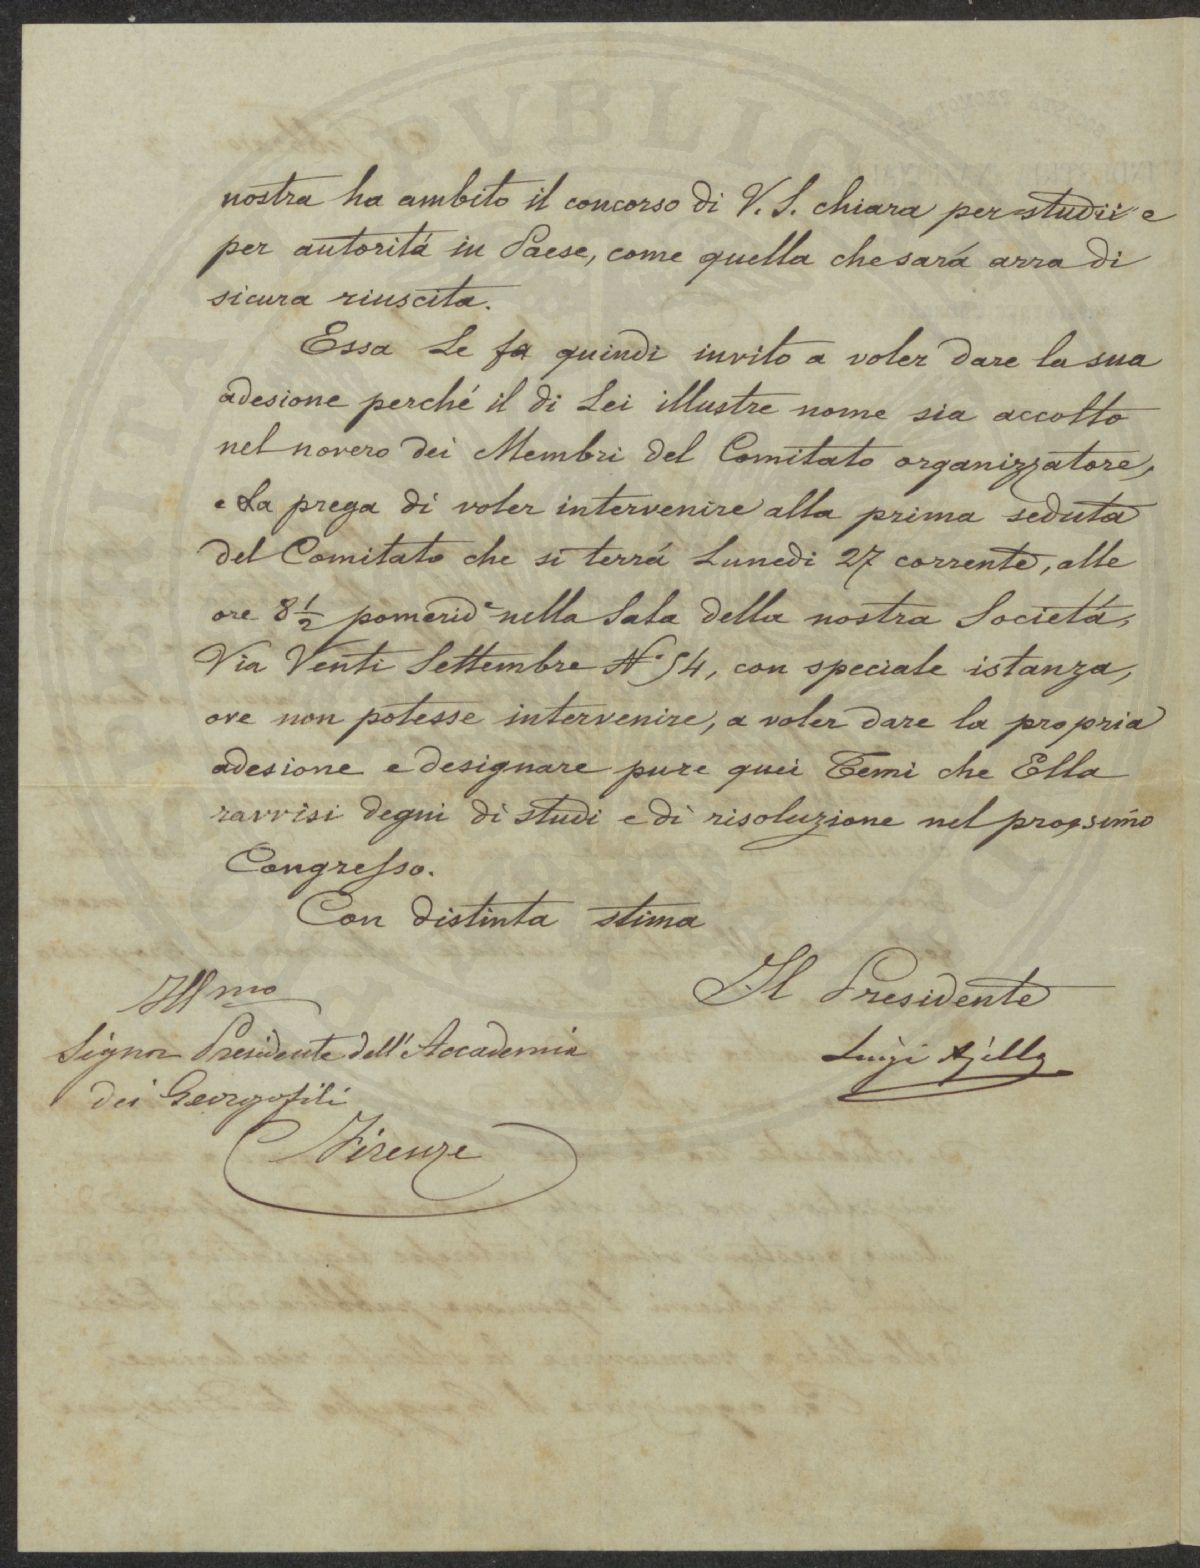 nostra ha ambito il concorso di V. S. chiara per studii e
per autoritá in Paese, come quella che sará arra di
sicura riuscita.
Essa Le fa quindi invito a voler dare la sua
adesione perché il di Lei illustre nome sia accolto
nel novero dei Membri del Comitato organizzatore,
e La prega di voler intervenire alla prima seduta
del Comitato che si terrá Lunedi 27 corrente, alle
ore 8 1/2 pomerid.e nella Sala della nostra Societá,
Via Venti Settembre N.° 54, con speciale istanza,
ove non potesse intervenire, a voler dare la propria
adesione e designare pure quei Temi che Ella
ravvisi degni di studi e di risoluzione nel prossimo
Congresso.
Con distinta stima
Il Presidente
Luigi
Ill mo
Signor Presidente dell'Accademia
dei Georgofili
Firenze